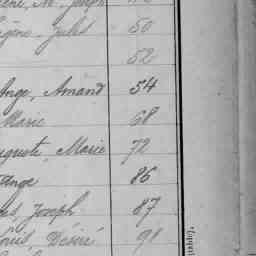 Jules 50
52
Ange, Amand 54
Marie 68
Auguste, Marie 72
Ange 86
Joseph 87
Louis, Désiré 91